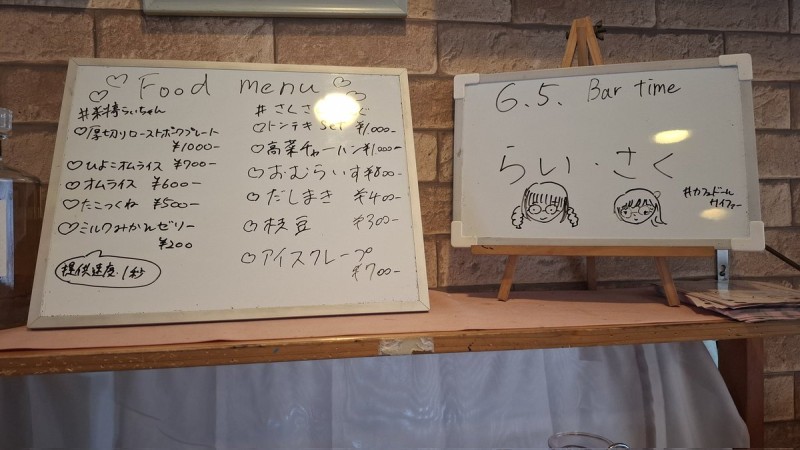 Food menu
#料亭らいちゃん
厚切りローストポークプレート
¥1000-
ひよこオムライス ¥700-
オムライス ¥600-
たこつくね ¥500-
ミルクみかんゼリー
¥200
提供速度1秒
#さくさ
トンテキ set ¥1000-
高菜チャーハン ¥1000-
おむらいす ¥800-
だしまき ¥400-
枝豆 ¥300-
アイスクレープ
¥700-
6.5. Bar time
らい・さく
#カフェドール
サイファー